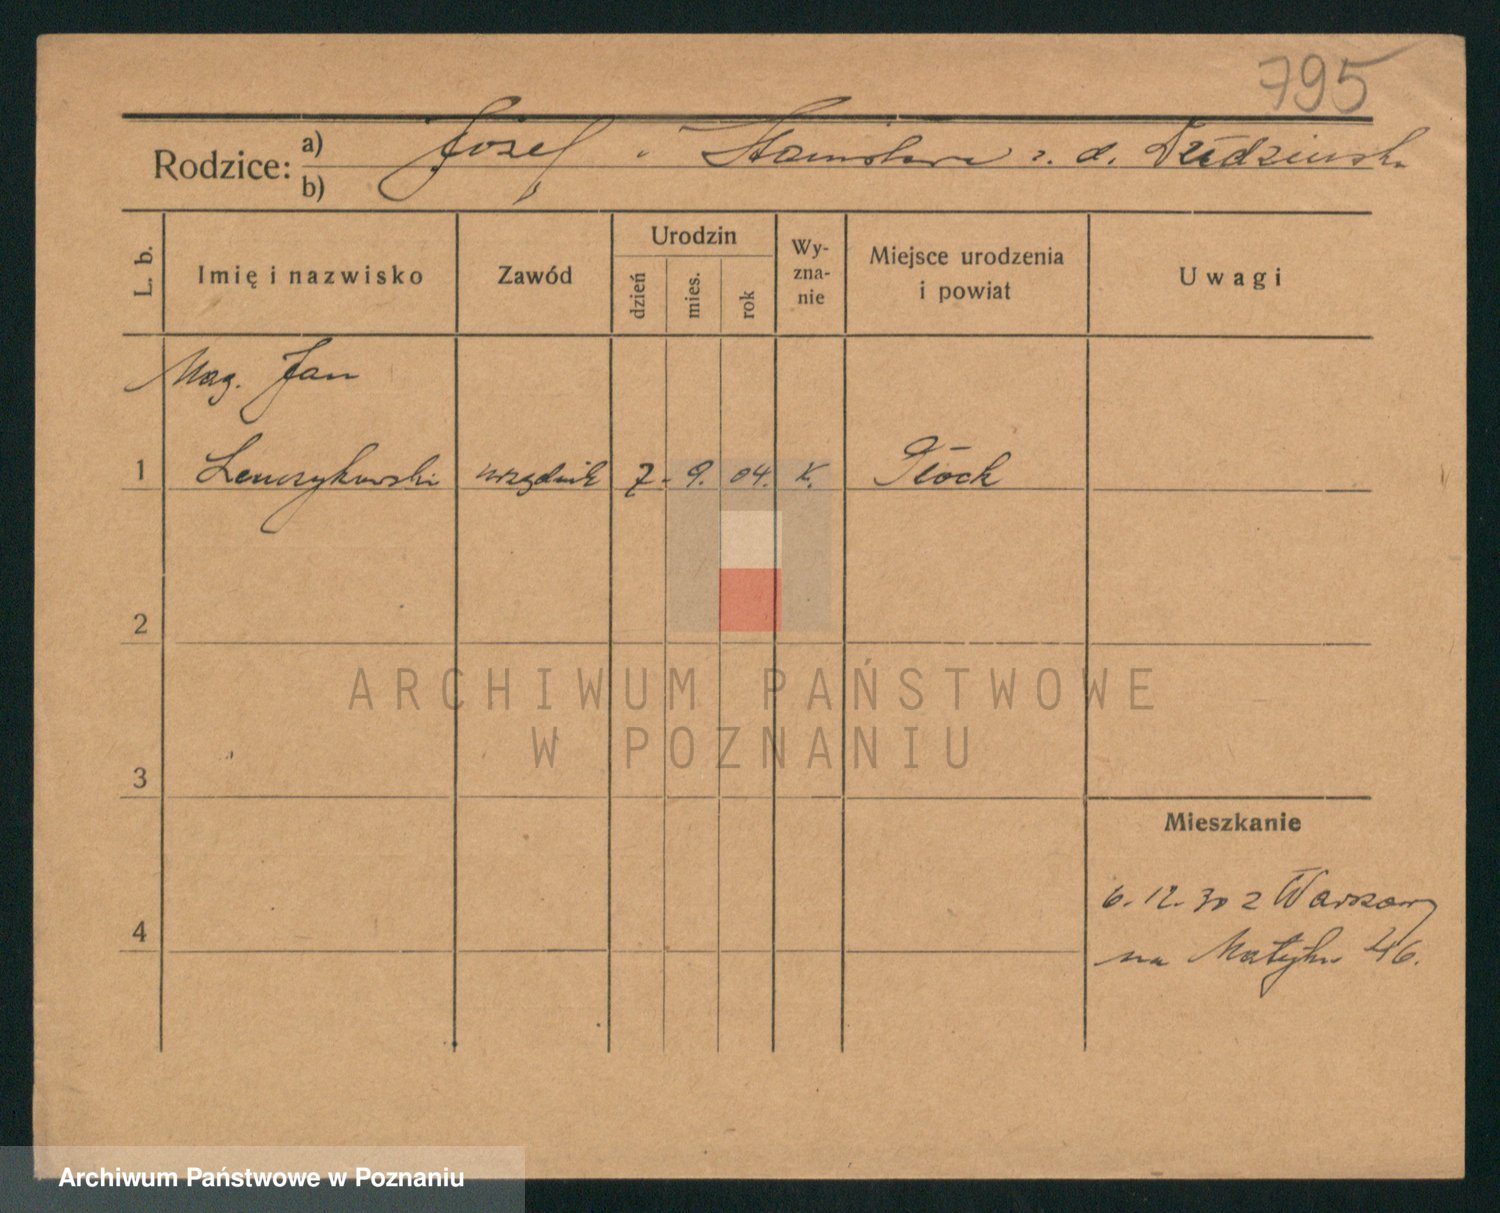 795
Rodzice: a) Józef i Stanisława z. d.
b)
L. b.
Imię i nazwisko
Zawód
Urodzin
dzień
mies.
rok
Wy-
zna-
nie
Miejsce urodzenia
i powiat
Uwagi
Mag. Jan
1 urzędnik 7. 9. 04. K. Płock
2
3
Mieszkanie
6. 12. 30 z Warszawy
na Matejki 46.
4
ARCHIWUM PAŃSTWOWE
W POZNANIU
Archiwum Państwowe w Poznaniu